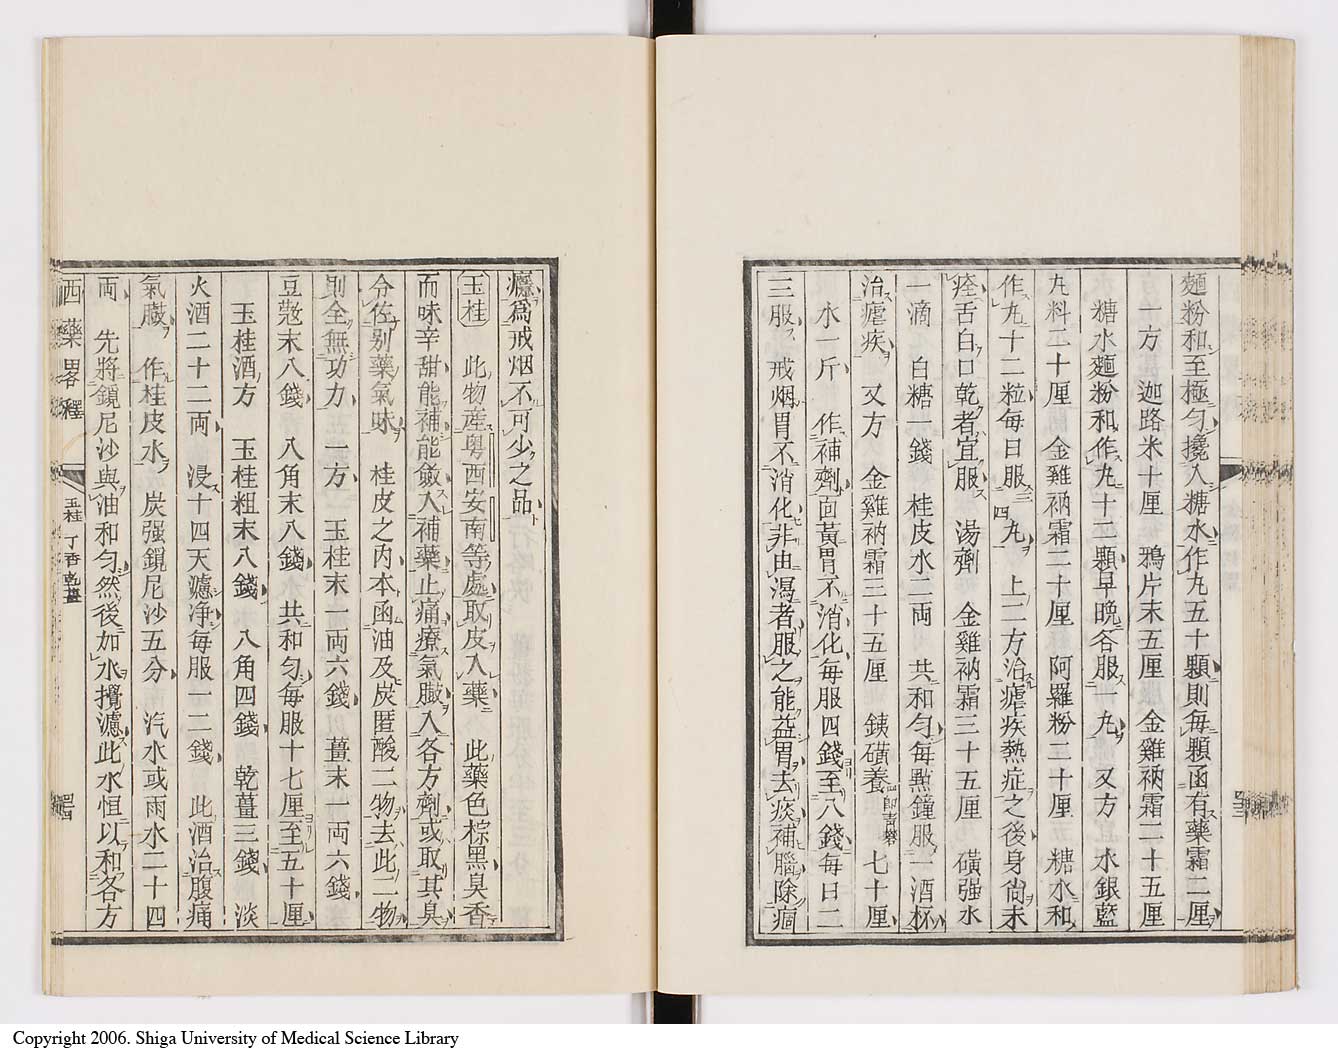 麵粉和至極勻攙入糖水作九五十顆則每顆函有藥霜二厘
一方　迦路米十厘　鴉片末五厘　金雞衲霜二十五厘
糖水麵粉和作九十二顆早晚各服一九　又方　水銀藍
九料二十厘　金雞衲霜二十厘　阿羅粉二十厘　糖水和
作九十二粒每日服三四九　上二方治瘧疾熱症之後身尙未
痊舌白口乾者宜服　湯劑　金雞衲霜三十五厘　磺强水
一滴　白糖一錢　桂皮水二両　共和勻每㸃鐘服一酒杯
治瘧疾　又方　金雞衲霜三十五厘　銕磺養即靑礬　七十厘
水一斤　作補劑面黃胃不消化每服四錢至八錢每日二
三服　戒烟胃不消化非由濕者服之能益胃去痰補腦除痼
癮爲戒烟不可少之品
玉桂　此物産粤西安南等處取皮入藥　此藥色棕黑臭香
而味辛甜能補能斂入補藥止痛療氣臌入各方劑或取其臭
令佐别藥氣味　桂皮之内本函油及炭匿酸二物去此二物
則全無功力　一方　玉桂末一両六錢　薑末一両六錢
豆蔲末八錢　八角末八錢　共和勻每服十七厘至五十厘
玉桂酒方　玉桂粗末八錢　八角四錢　乾薑三錢　淡
火酒二十二両　浸十四天濾净每服一二錢　此酒治腹痛
氣臌　作桂皮水　炭强鎂尼沙五分　汽水或雨水二十四
両　先將鎂尼沙與油和勻然後加水攪濾此水恒以和各方
西藥畧釋
玉桂　丁香　乾薑
Copyright 2006. Shiga University of Medical Science Library